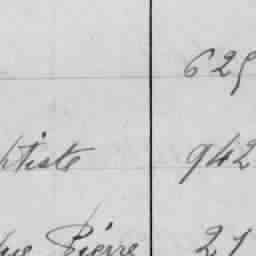 625
ptiste 942
que Pierre 21